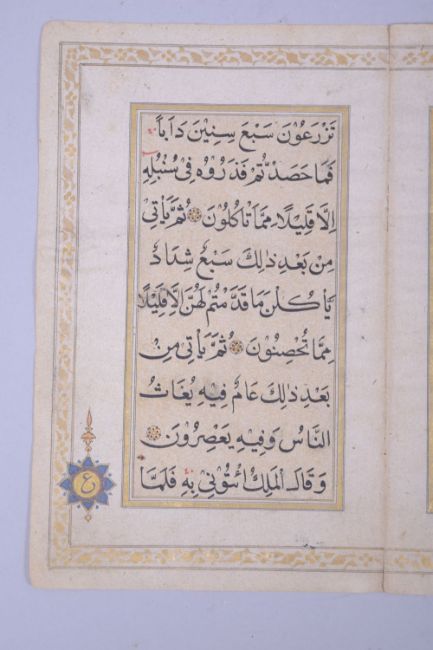 تَزْرَعُوْنَ سَبْعَ سِنِيْنَ دَاَبًا
فَمَا حَصَدْتُّمْ فَذَرُوْهُ فِىْ سُنْبُلِهٖ
اِلَّا قَلِيْلًا مِمَّا تَاْكُلُوْنَ ثُمَّ يَاْتِىْ
مِنْ بَعْدِ ذٰلِكَ سَبْعٌ شِدَادٌ
يَاْكُلْنَ مَا قَدَّمْتُمْ لَهُنَّ اِلَّا قَلِيْلًا
مِمَّا تُحْصِنُوْنَ ثُمَّ يَاْتِىْ مِنْ
بَعْدِ ذٰلِكَ عَامٌ فِيْهِ يُغَاثُ
النَّاسُ وَفِيْهِ يَعْصِرُوْنَ
وَقَالَ الْمَلِكُ ائْتُوْنِىْ بِهٖ فَلَمَّا
ع